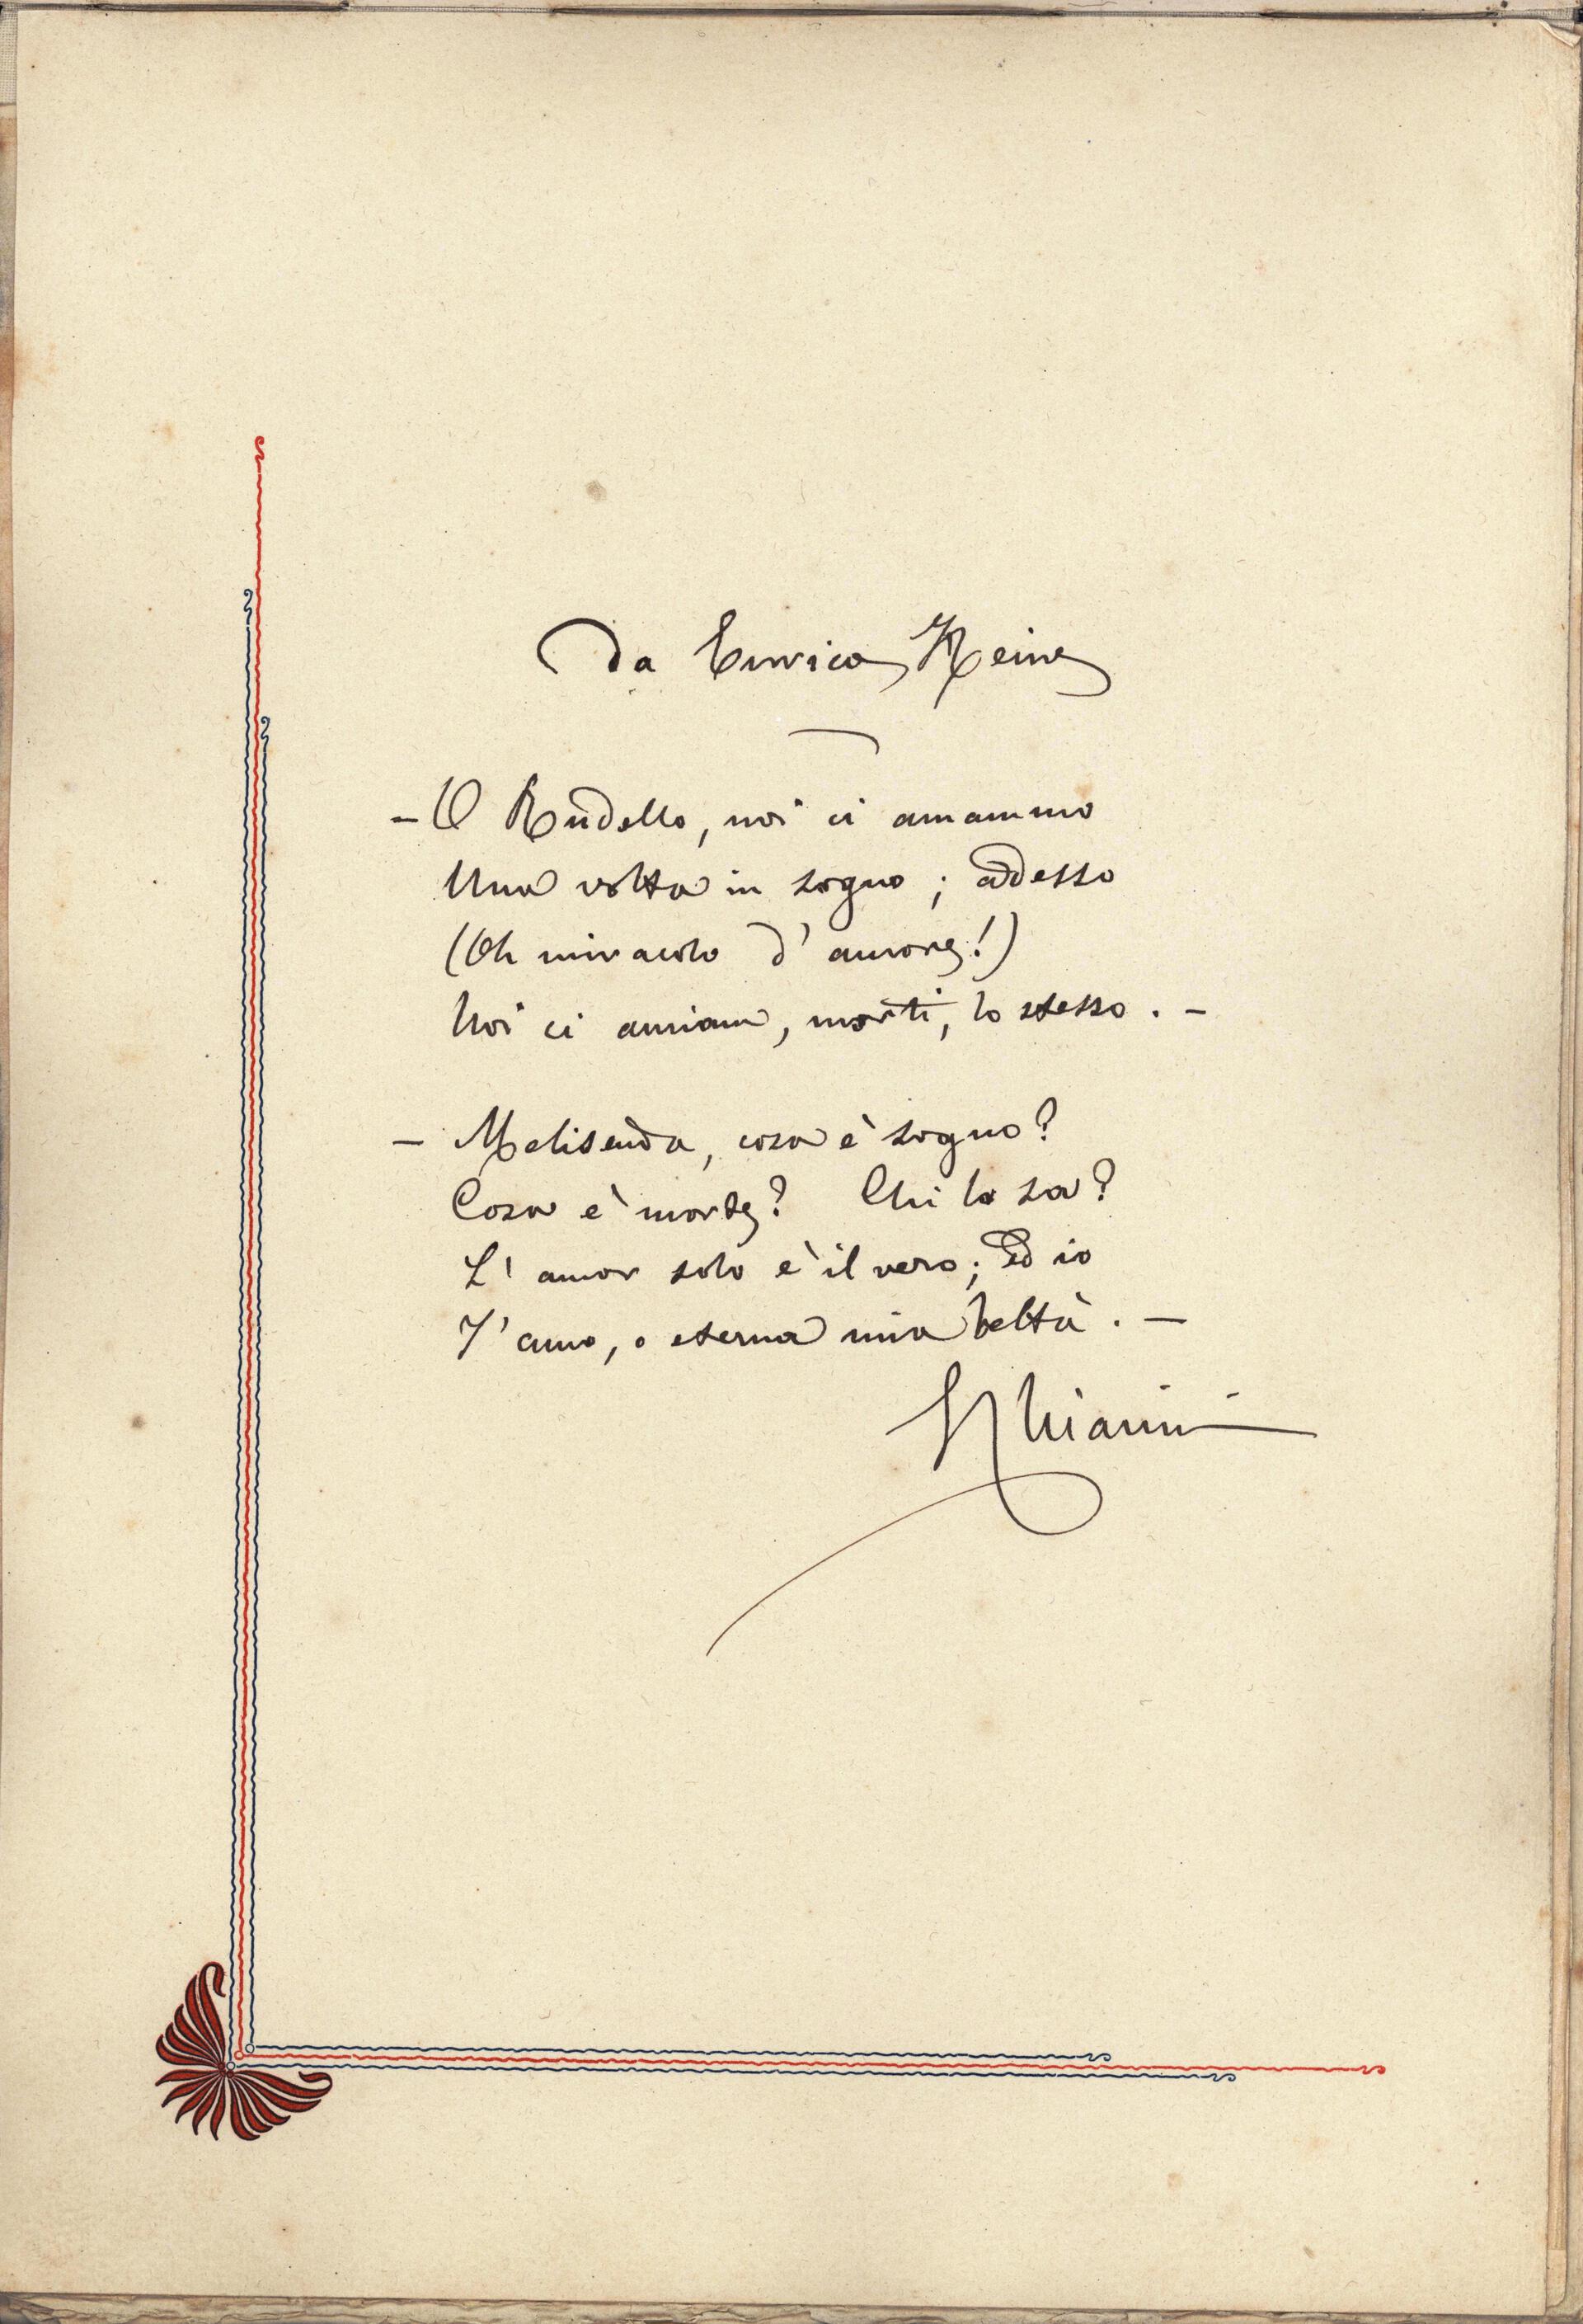 Da Enrico Heine
– O Rudello, noi ci amammo
Una volta in sogno; adesso
(Oh miracolo d'amore!)
Noi ci amiam, morti, lo stesso. –
– Melisenda, cosa è sogno?
Cosa è morte? Chi lo sa?
L'amor solo è il vero; ed io
T'amo, o eterna mia beltà. –
Chiarini